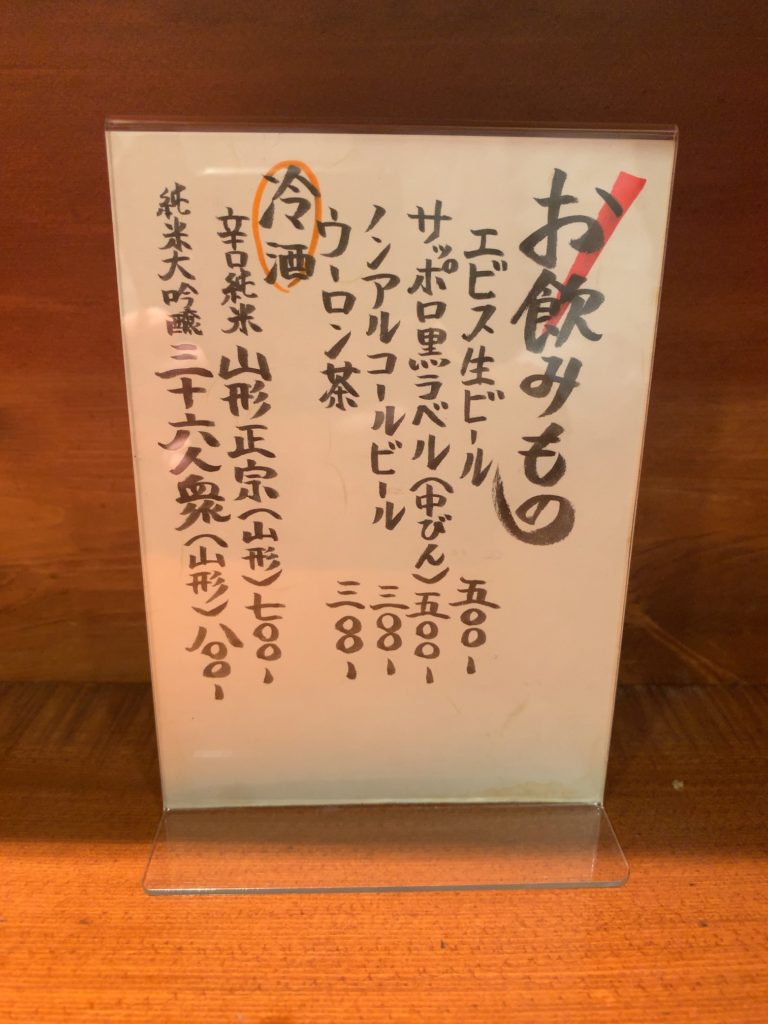 お飲みもの
エビス生ビール 五〇〇-
サッポロ黒ラベル(中びん) 五〇〇-
ノンアルコールビール 三〇〇-
ウーロン茶 三〇〇-
冷酒
辛口純米 山形正宗(山形) 七〇〇-
純米大吟醸 三十六人衆(山形) 八〇〇-